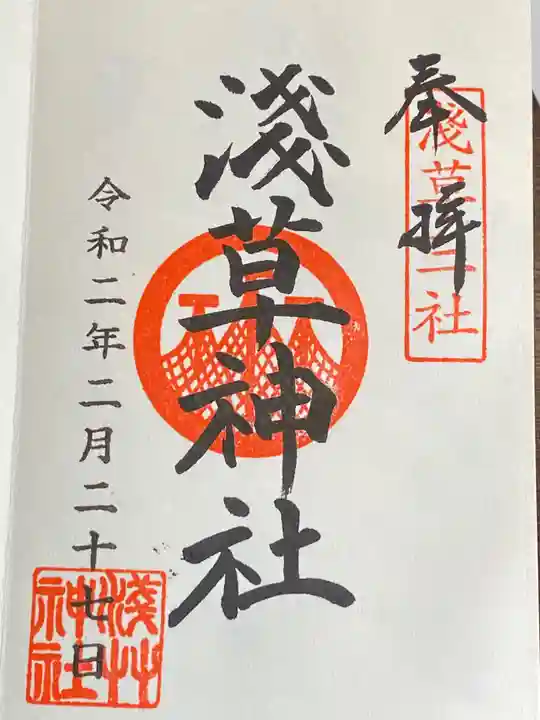 奉拝
淺草三社
淺草神社
令和二年二月二十七日
淺草神社